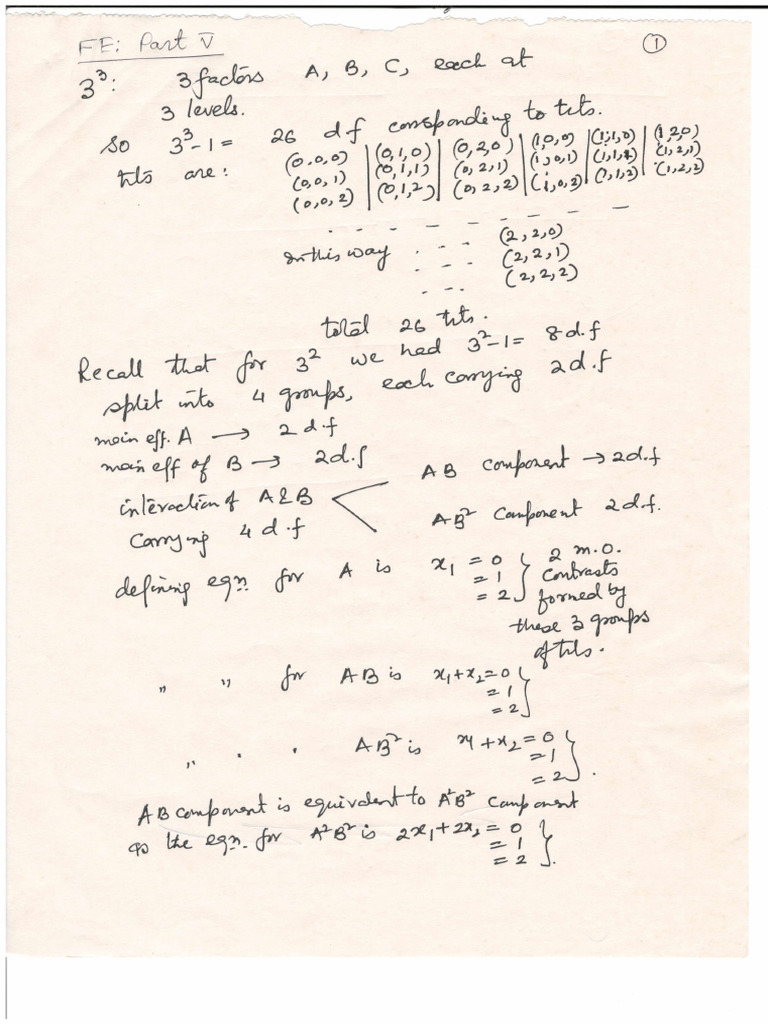 FE: Part V
①
3³: 3 factors A, B, C, each at
3 levels.
so 3³-1 = 26 d f corresponding to trts.
trts are: (0,0,0) | (0,1,0) | (0,2,0) | (1,0,0) | (1,1,0) | (1,2,0)
(0,0,1) | (0,1,1) | (0,2,1) | (1,0,1) | (1,1,1) | (1,2,1)
(0,0,2) | (0,1,2) | (0,2,2) | (1,0,2) | (1,1,2) | (1,2,2)
- - - - - - - - - -
(2,2,0)
In this way . - - (2,2,1)
. - - - (2,2,2)
total 26 trts.
Recall that for 3² we had 3²-1 = 8 d.f
split into 4 groups, each carrying 2 d.f
main eff. A → 2 d.f
main eff of B → 2d.f
AB component → 2d.f
interaction of A & B
carrying 4 d.f
AB² component 2 d.f.
defining eqn. for A is x₁ = 0
= 1
= 2 } 2 m.o.
contrasts
formed by
these 3 groups
of trts.
" " for AB is x₁+x₂ = 0
= 1
= 2 }
" . . AB² is x₁ + x₂ = 0
= 1
= 2 } .
AB component is equivalent to A²B² component
as the eqn. for A²B² is 2x₁ + 2x₂ = 0
= 1
= 2 }.